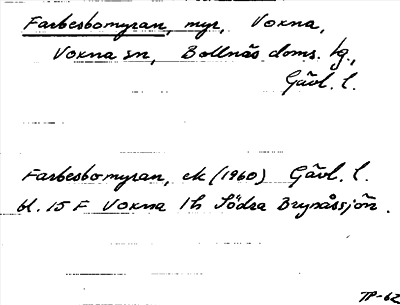 Farbesbomyran, myr, Voxna,
Voxna sn, Bollnäs doms. tg.,
Gävl. l.
Farbesbomyran, ek (1960) Gävl. l.
bl. 15 F Voxna 1h Södra Brynåssjön.
TP-62